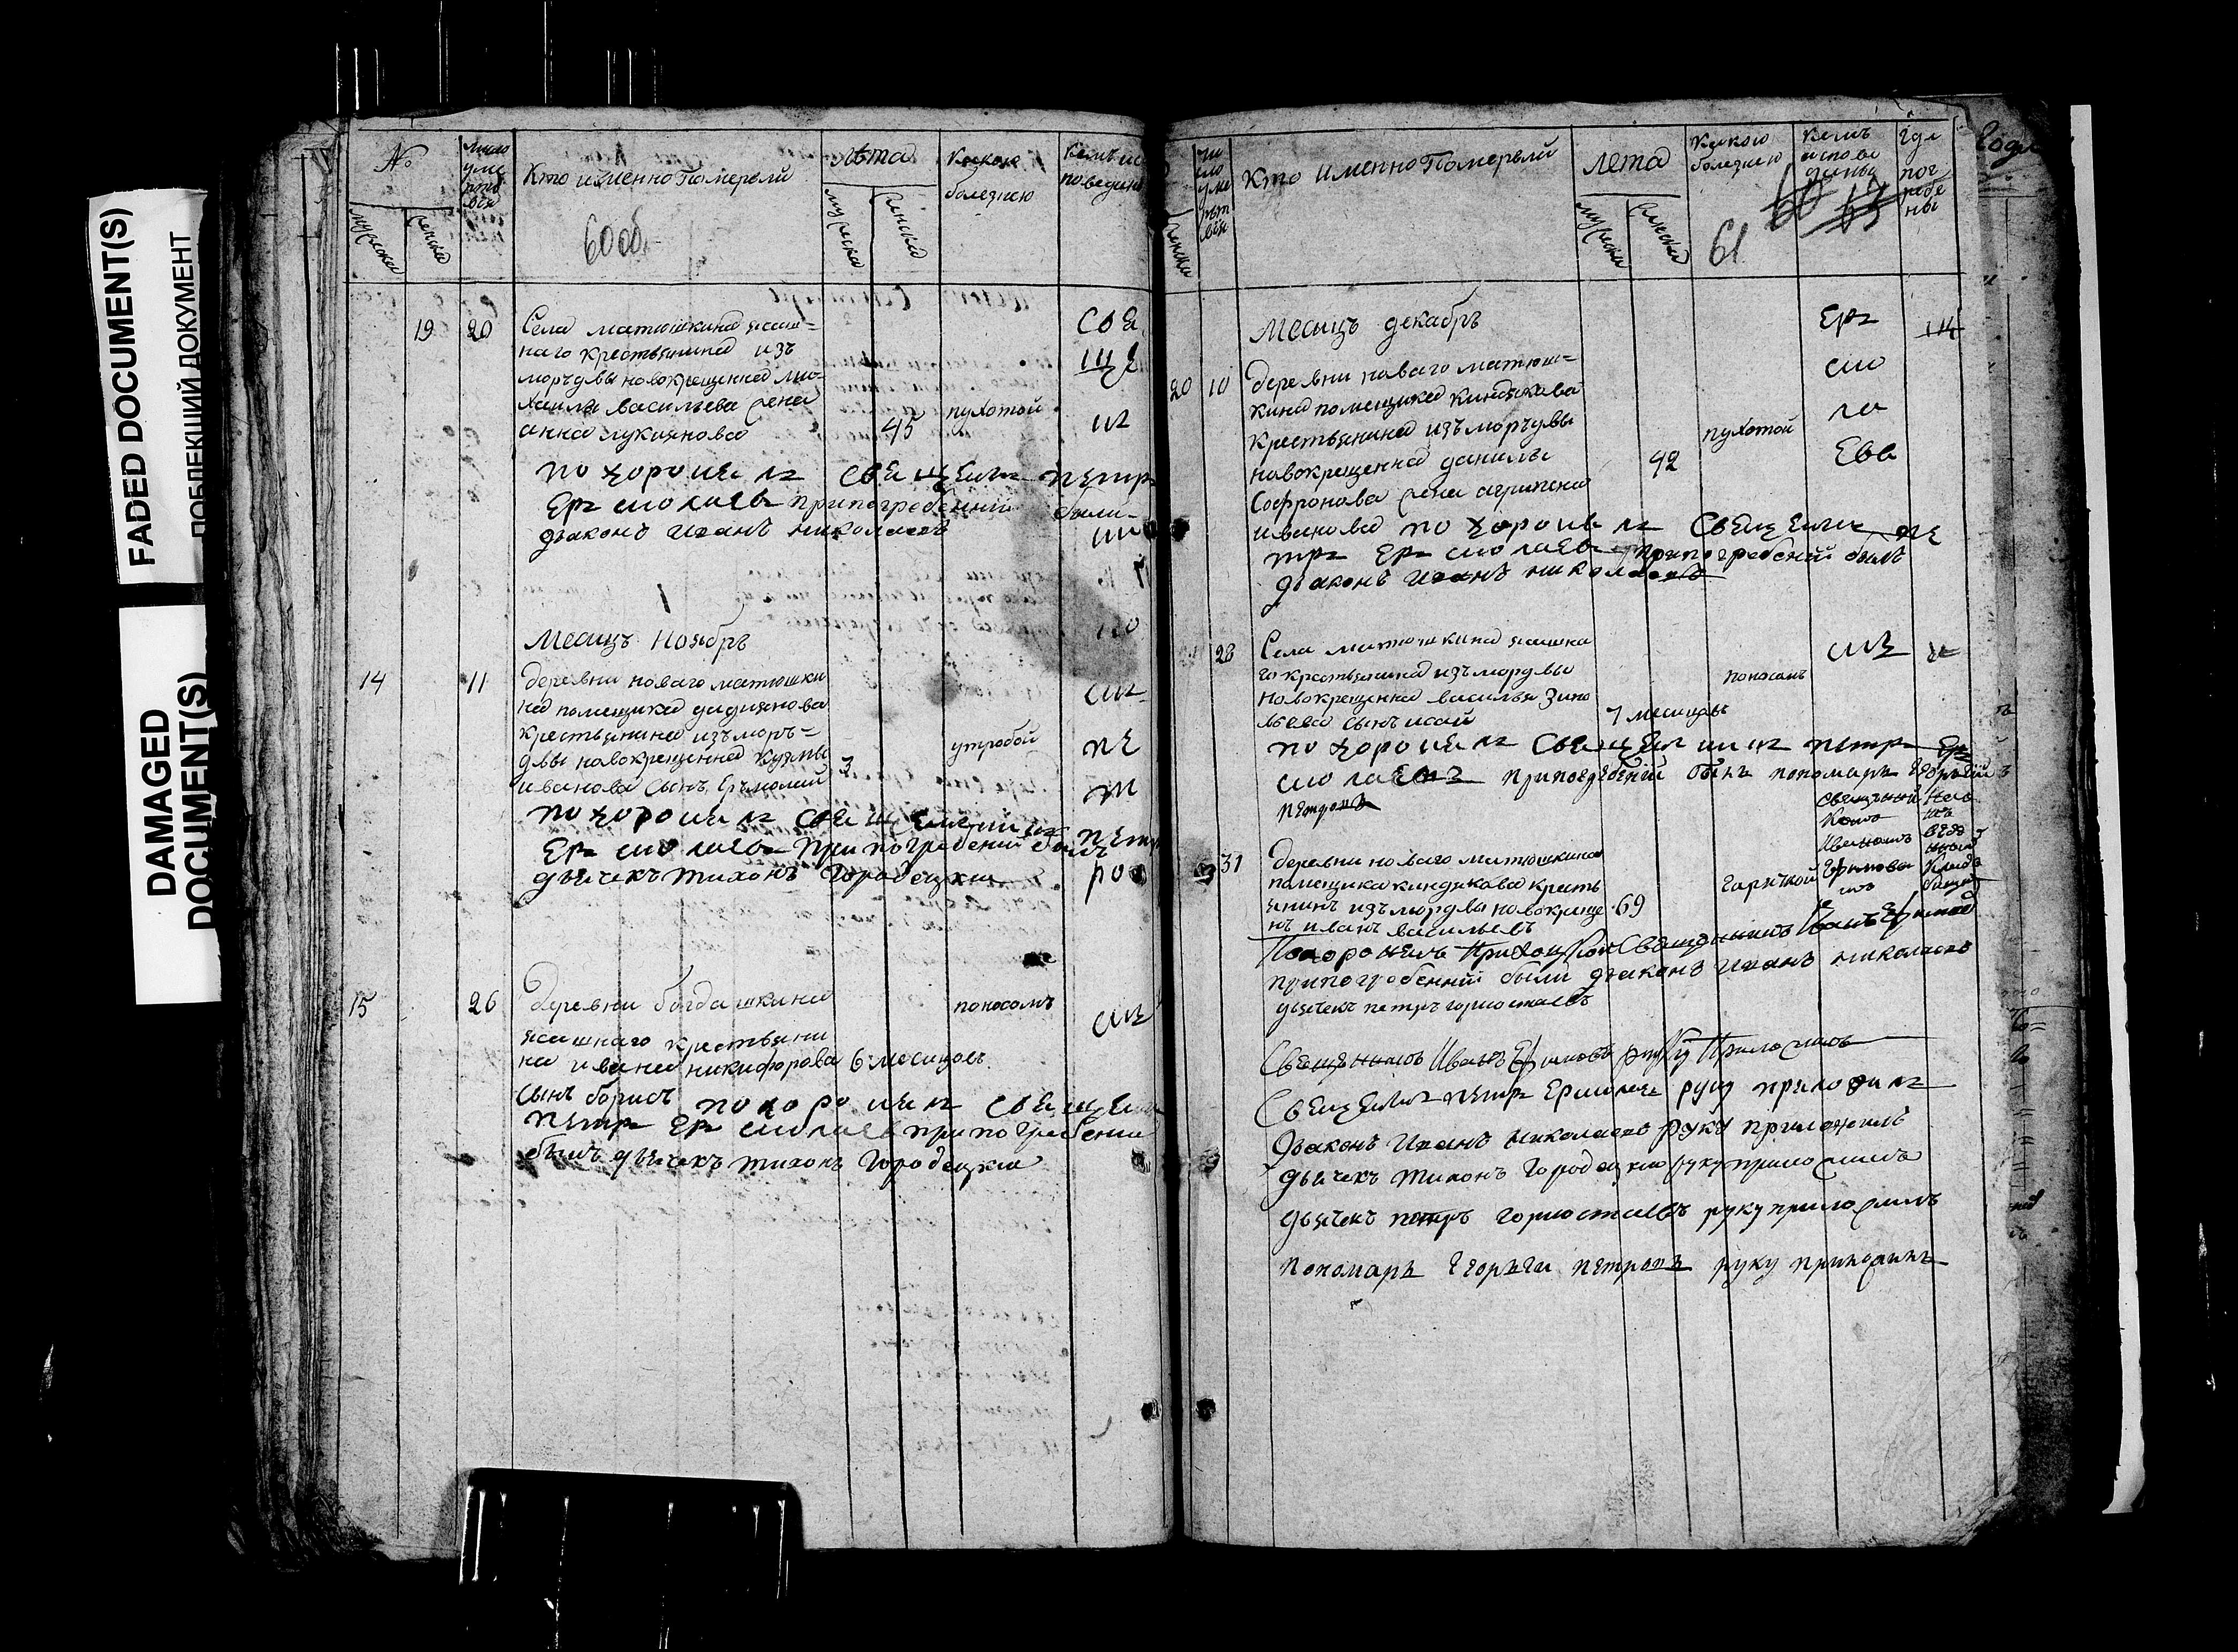 FADED DOCUMENT(S)
ПОБЛЕКШИЙ ДОКУМЕНТ
DAMAGED
DOCUMENT(S)
№
мужеска
женска
число
уме
ртв
вїя
Кто именно Померьлй
60 об
лѣта
мужеска
женска
Какою
болезнею
Кемъ ис
поведин
19 20
Села матюшкина ясаш=
наго крестьянина изъ
морчдвы новокрещенна ми-
хаилы васильева жена
анна лукиянова
45
пухотой
СВЯ
ЩЕ
похоронелъ Свещенникъ петръ
Ермолаевъ припогребений были
дьаконъ Иванъ николаевъ
Месицъ Ноябръ
14 11
деревни новаго матюшки
на помещика дадиянова
крестьянина изъ мор=
двы новокрещенна кузмы
иванова сынъ Еръмолай
3
утробой
ПЕ
Т
ро
похоронелъ свещенникъ петръ
Ермолаевъ припогребений былъ
дьячекъ тихонъ Городецкии
15 26
деревни богдашкина
ясашнаго крестьяни
на ивана никифорова
сынъ борисъ
6 месицовъ
поносомъ
похоронелъ свещен
петръ Ермолаевъ припогребении
былъ дьячекъ тихонъ Городецкии
женска
чи
сло
уме
ртв
вїя
Кто именно Померьлй
лета
мужеска
женска
Какою
болезнею
61
Кемъ
испове
даны
60 63
Где
пог
ребе
ны
Месицъ декабръ
20 10
деревни новаго матюш=
кина помещика киндякова
крестьянина изъ морчдвы
новокрещенна данилы
Софронова жена агрипена
иванова похоронелъ Свещенни пе
тръ Ермолаевъ припогребений былъ
дьаконъ Иванъ николаевъ
42
пухотой
Ер
мо
ла
Ева
28
Села матюшкина ясашна
го крестьянина изъ мордвы
новокрещенна василья Зино
вьева сынъ исай
7 месицовъ
поносомъ
похоронелъ Свещенникъ петръ Ер
молаевъ припогребений былъ пономаръ Георьгий
Петровъ
31
деревни новаго матюшкина
помещика киндякова кресть
янинъ изъ мордвы новокреще
нъ иванъ васильевъ
69
гарячкой
Похоронелъ Приходской Священникъ Иванъ Ефимовъ
припогребенний были дьаконъ Иванъ николаевъ
дьячекъ петръ горностаевъ
Священникъ Иванъ Ефимовъ руку Приложилъ
Свещенникъ петръ Ермолаев руку приложилъ
Дьаконъ Иванъ николаевъ руку приложилъ
дьячекъ тихонъ Городецкии руку приложилъ
дьячекъ петръ горностаевъ руку приложилъ
пономаръ Георьги петровъ руку приложилъ